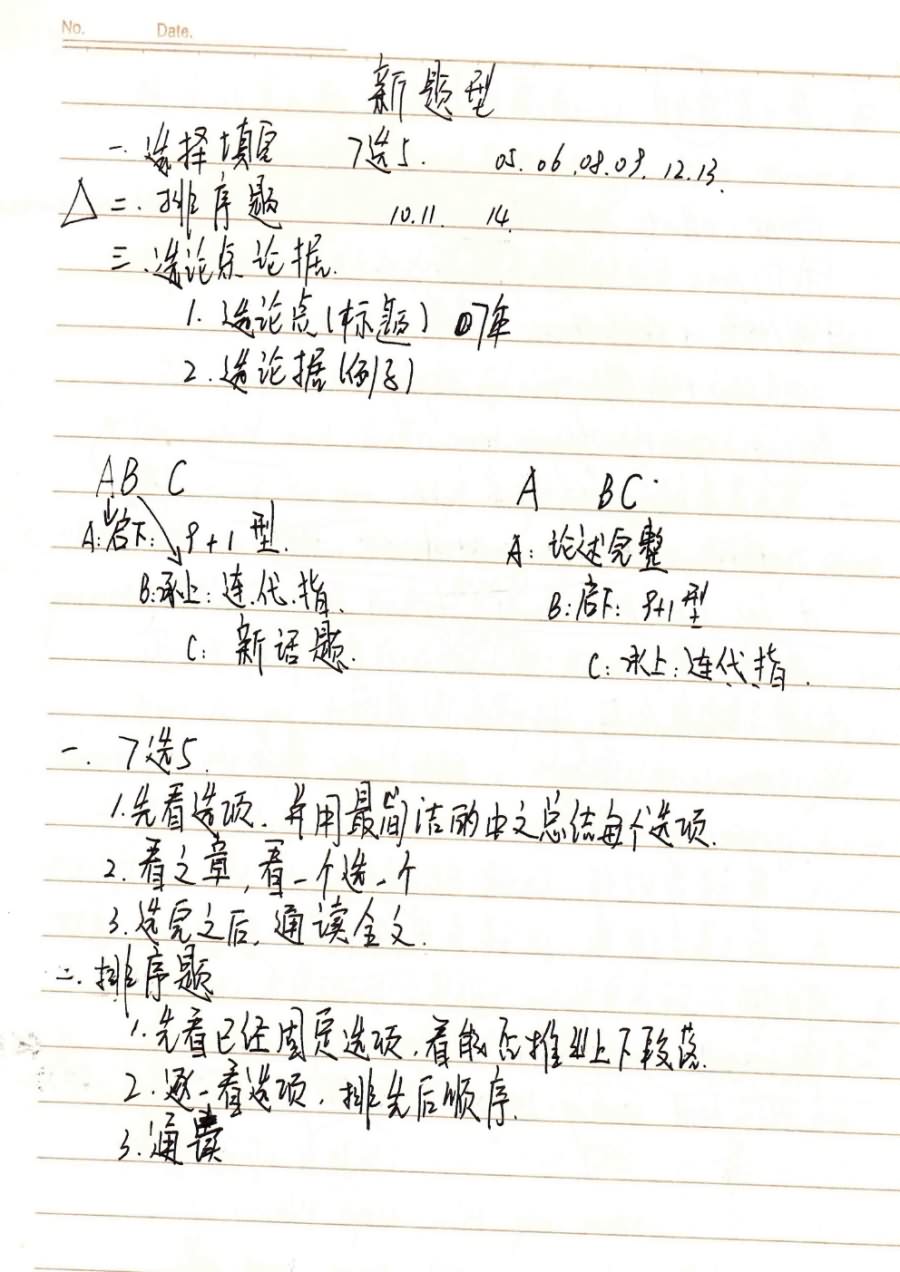 No. Date.
新题型
一. 选择填空 7选5. 05.06.08.09.12.13.
△二. 排序题 10.11 14.
三.选论点论据.
1. 选论点(标题) 07年
2. 选论据(例子)
AB C
A:启下: P+1型.
B:承上:连.代.指.
C: 新话题.
A BC
A: 论述完整
B:启下: P+1型
C:承上:连.代.指.
一. 7选5.
1.先看选项.并用最简洁的中文总结每个选项.
2.看文章,看一个选一个
3.选完之后,通读全文.
二.排序题
1.先看已经固定选项,看能否推出上下段落.
2.逐一看选项,排先后顺序.
3.通读